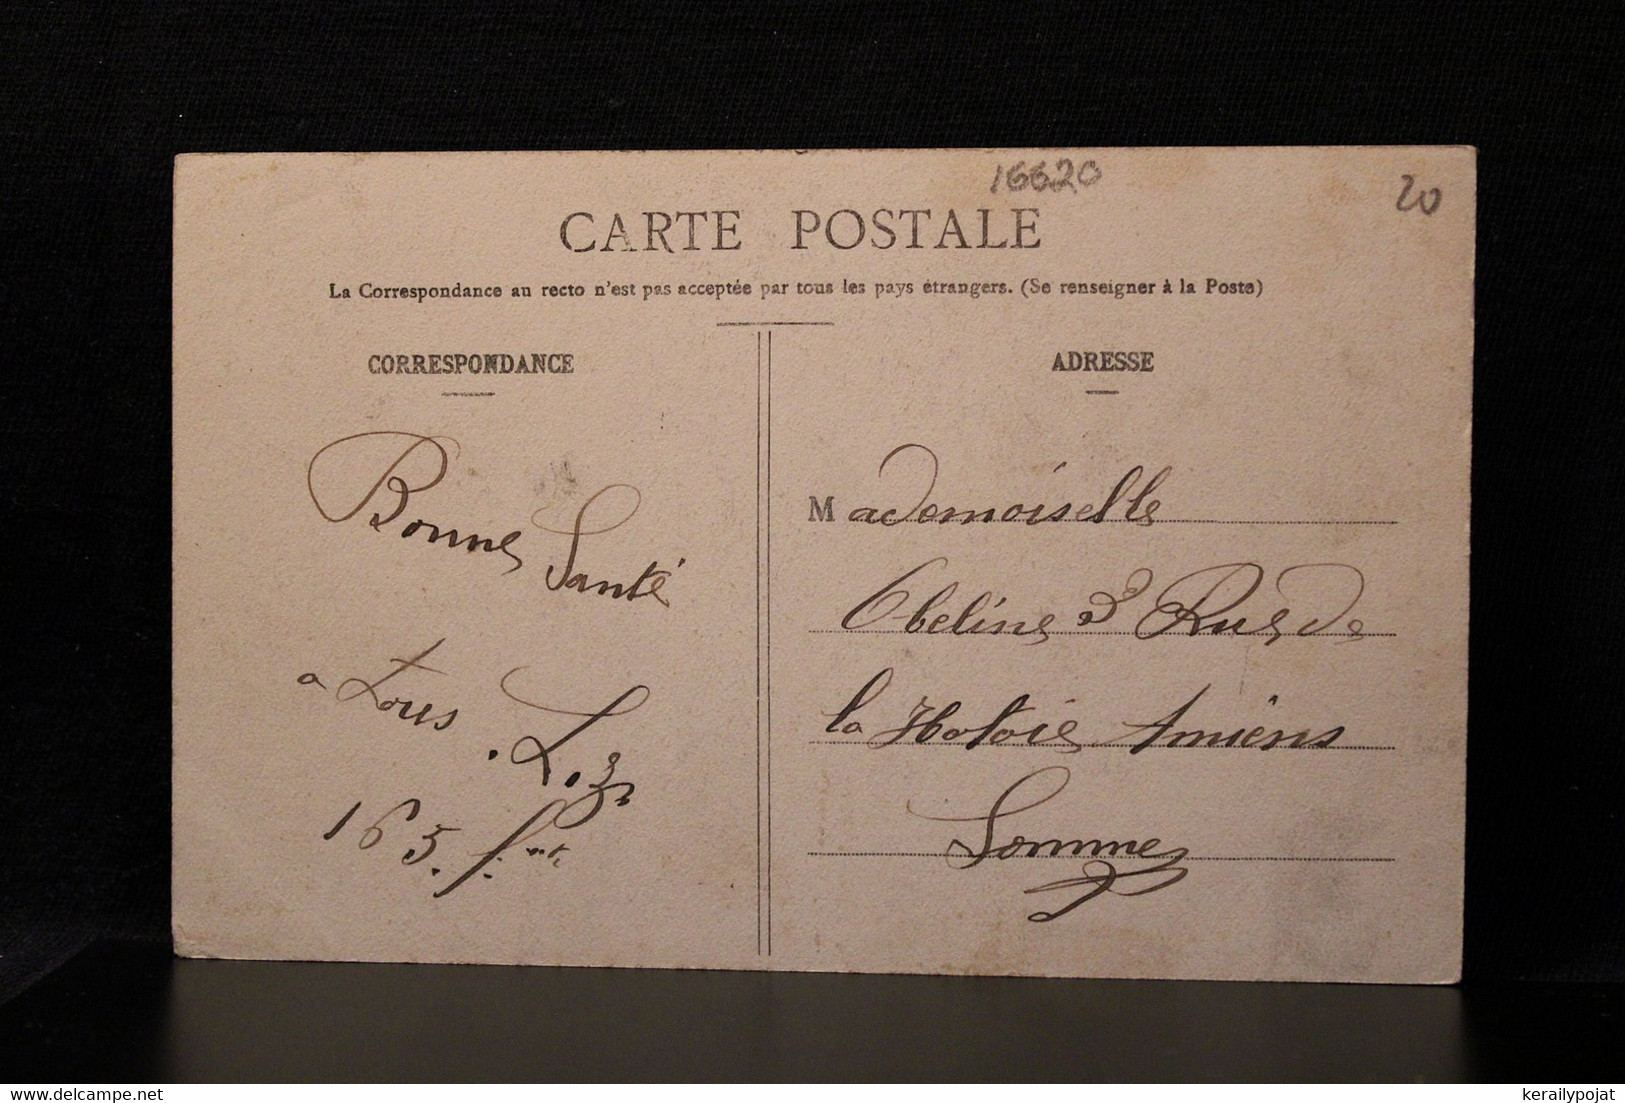 16620
20
CARTE POSTALE
La Correspondance au recto n'est pas acceptée par tous les pays étrangers. (Se renseigner à la Poste)
CORRESPONDANCE
ADRESSE
Bonne Santé
a Tous
165.
Mademoiselle
Obeline 3 Rue de
la Hotoie Amiens
Somme
kerailypojat